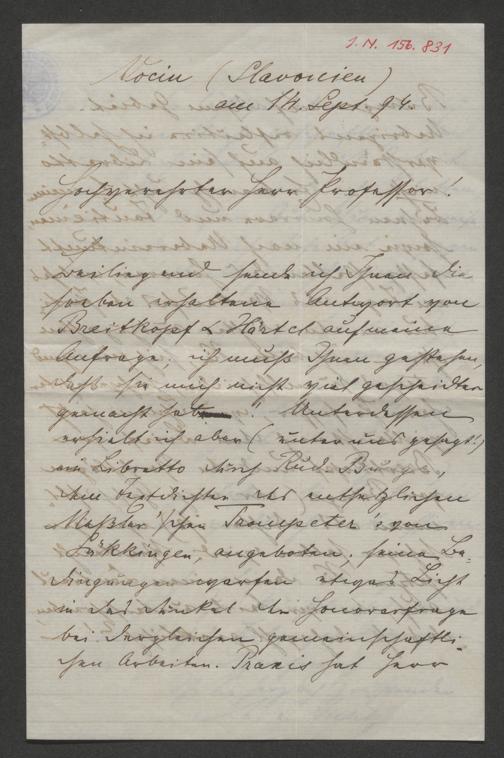 J.N. 156.831
Vocin (Slavonien)
am 14. Sept. 94.
Hochverehrter Herr Professor!
Beiliegend sende ich Ihnen die
soeben erhaltene Antwort von
Breitkopf & Härtel auf meine
Anfrage; ich muß Ihnen gestehen,
daß sie mich nicht viel gescheidter
gemacht hat! Unterdessen
erhielt ich aber (unter uns gesagt!)
ein Libretto durch Rud. Bunge,
dem Textdichter des entsetzlichen
Neßler'schen Trompeter's von
Säkkingen, angeboten; seine Be-
dingungen warfen etwas Licht
in das Dunkel der Honorarfrage
bei dergleichen gemeinschaftli-
chen Arbeiten. Praxis hat Herr